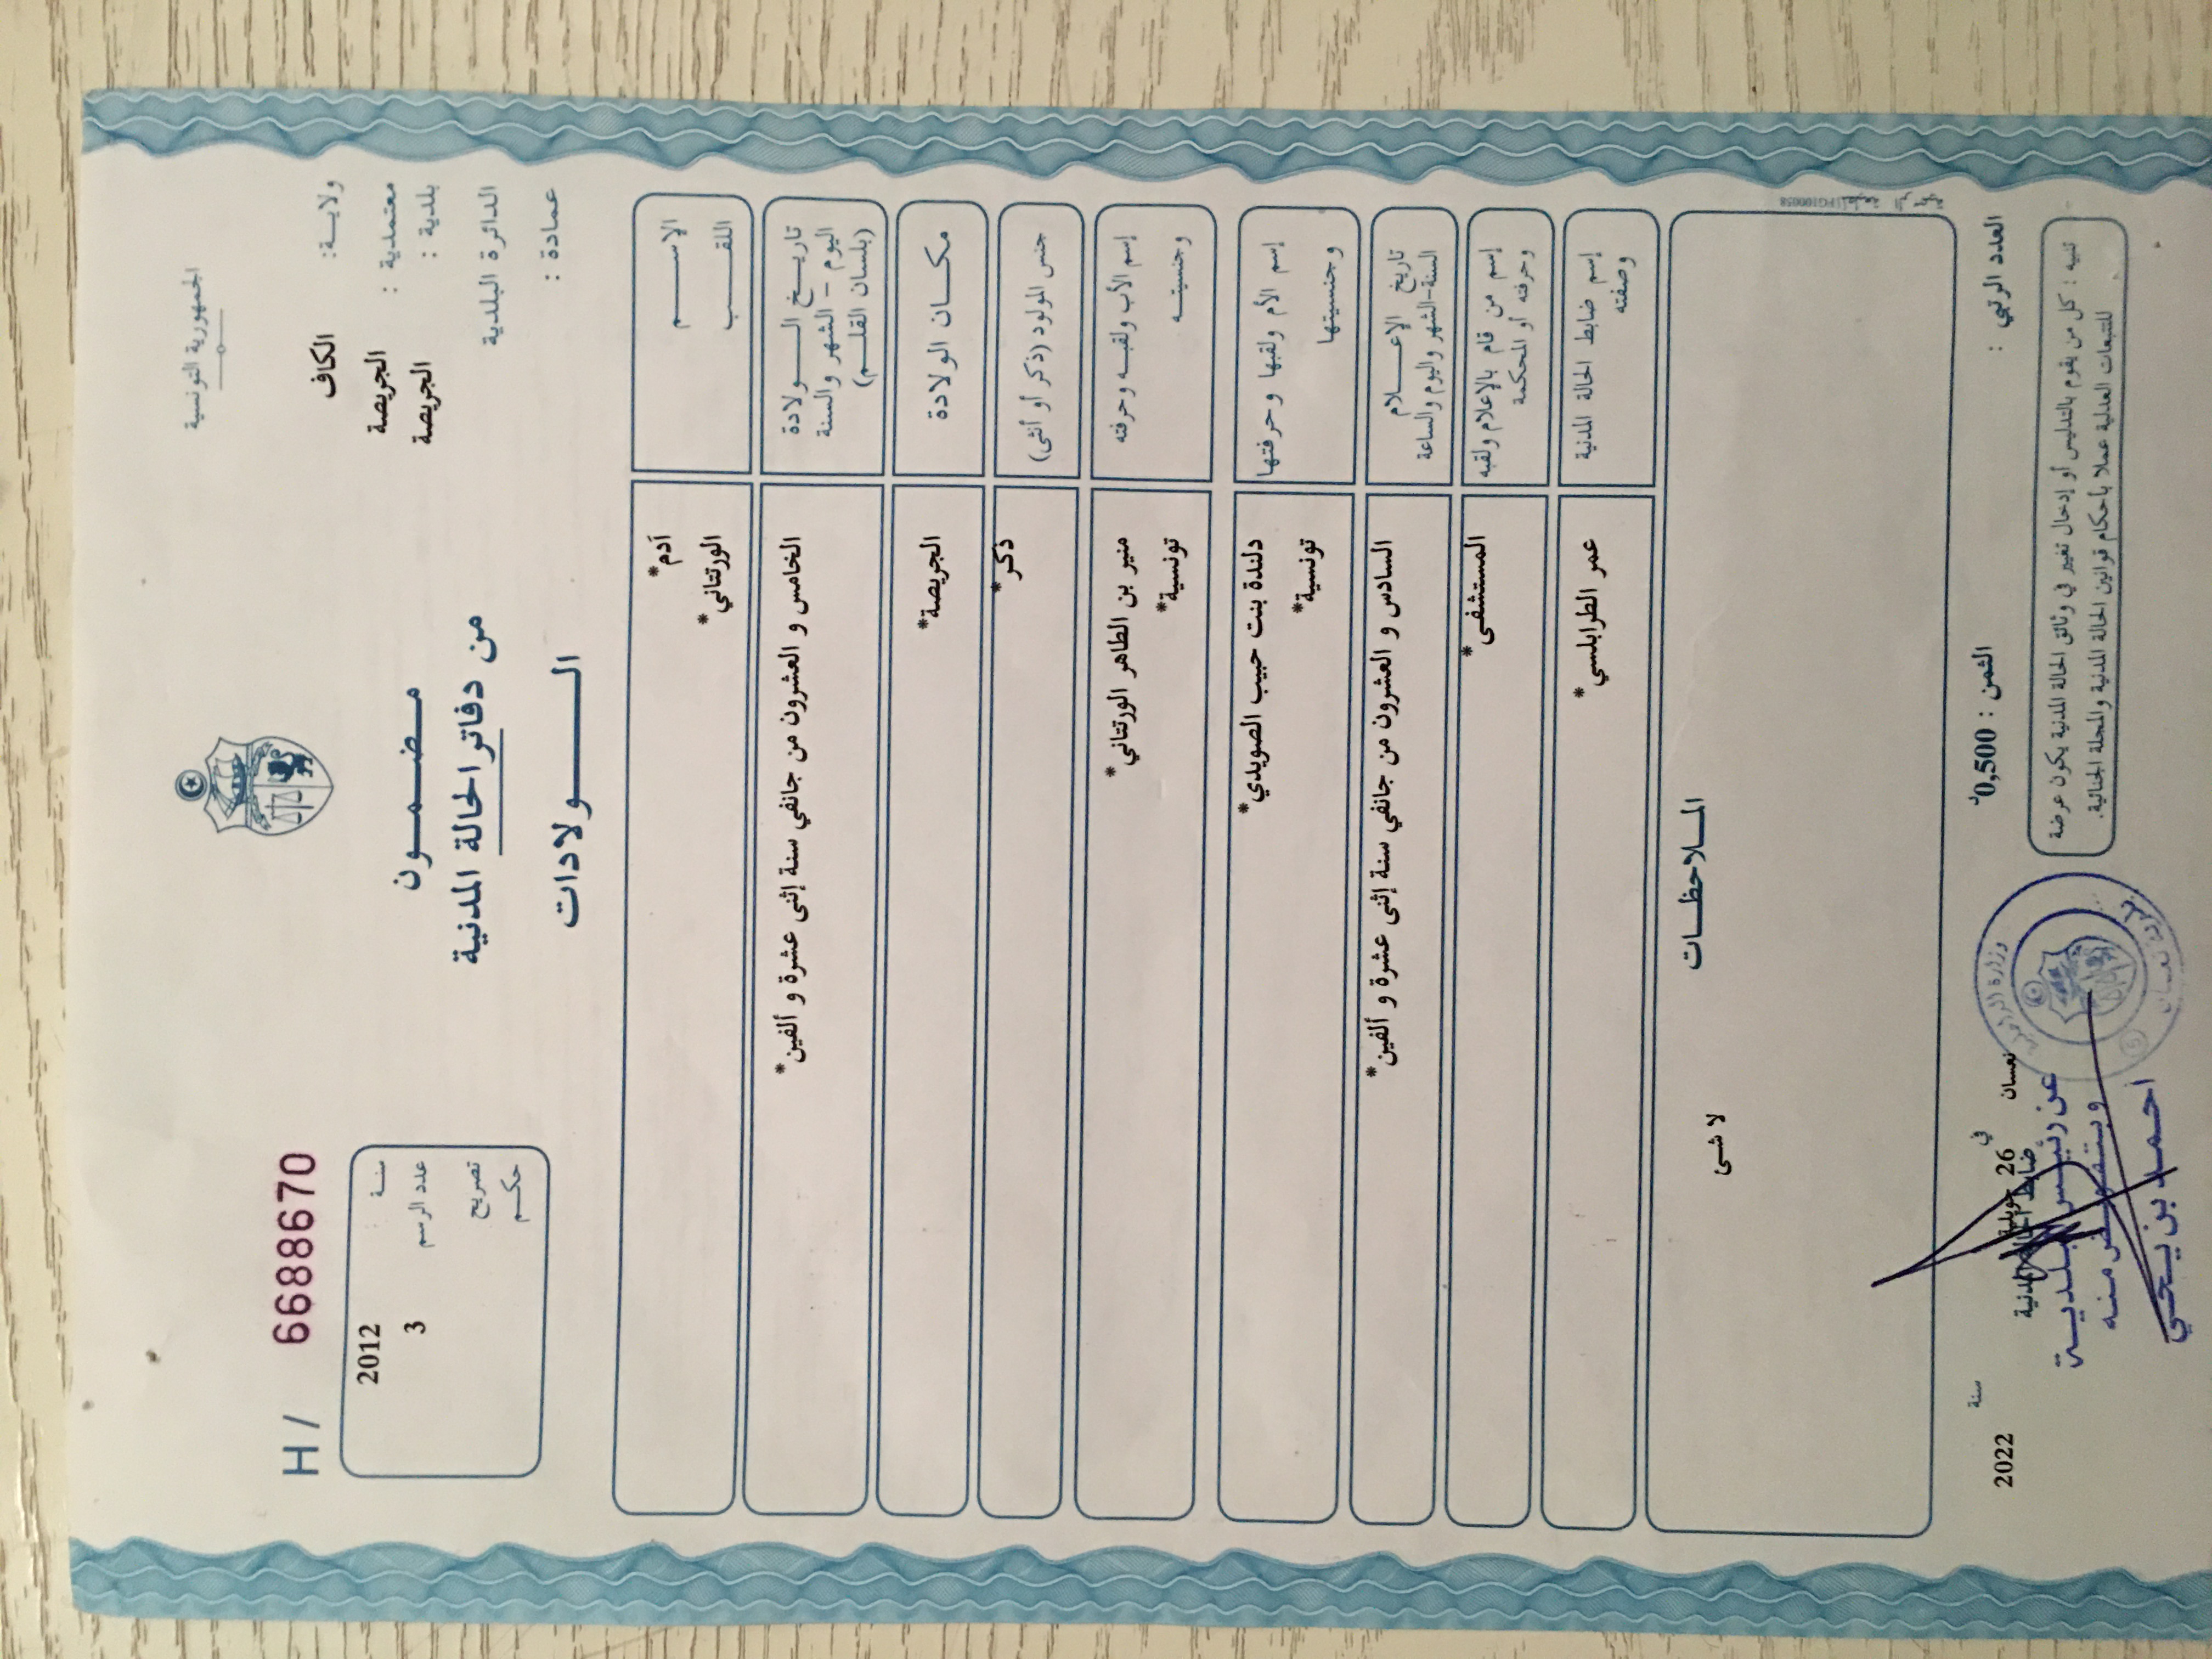 الجمهورية التونسية
ولاية: الكاف
معتمدية : الجريصة
بلدية : الجريصة
الدائرة البلدية
عمادة :
مضمون
من دفاتر الحالة المدنية
الولادات
H / 6688670
سنة 2012
عدد الرسم 3
تصريح
حكم
الإسم آدم*
اللقب الورتتاني*
تاريخ الولادة
اليوم - الشهر والسنة
(بلسان القلم)
الخامس و العشرون من جانفي سنة إثنى عشرة و ألفين*
مكان الولادة الجريصة*
جنس المولود (ذكر أو أنثى) ذكر*
إسم الأب ولقبه وحرفته منير بن الطاهر الورتتاني*
وجنسيته تونسية*
إسم الأم ولقبها وحرفتها دلندة بنت حبيب الصويدي*
وجنسيتها تونسية*
تاريخ الإعلام
السنة-الشهر واليوم والساعة
السادس و العشرون من جانفي سنة إثنى عشرة و ألفين*
إسم من قام بالإعلام ولقبه
وحرفته أو المحكمة
المستشفى*
إسم ضابط الحالة المدنية
وصفته
عمر الطرابلسي*
الملاحظات
لا شئ
العدد الرتبي :
الثمن : 0,500د
نعسان في 26 جويلية سنة 2022
ضابط الحالة المدنية
تنبيه : كل من يقوم بالتدليس أو إدخال تغيير في وثائق الحالة المدنية يكون عرضة
للتتبعات العدلية عملا بأحكام قوانين الحالة المدنية والمجلة الجنائية.
عن رئيس البلدية
وبتفويض منه
أحمد بن يحيي